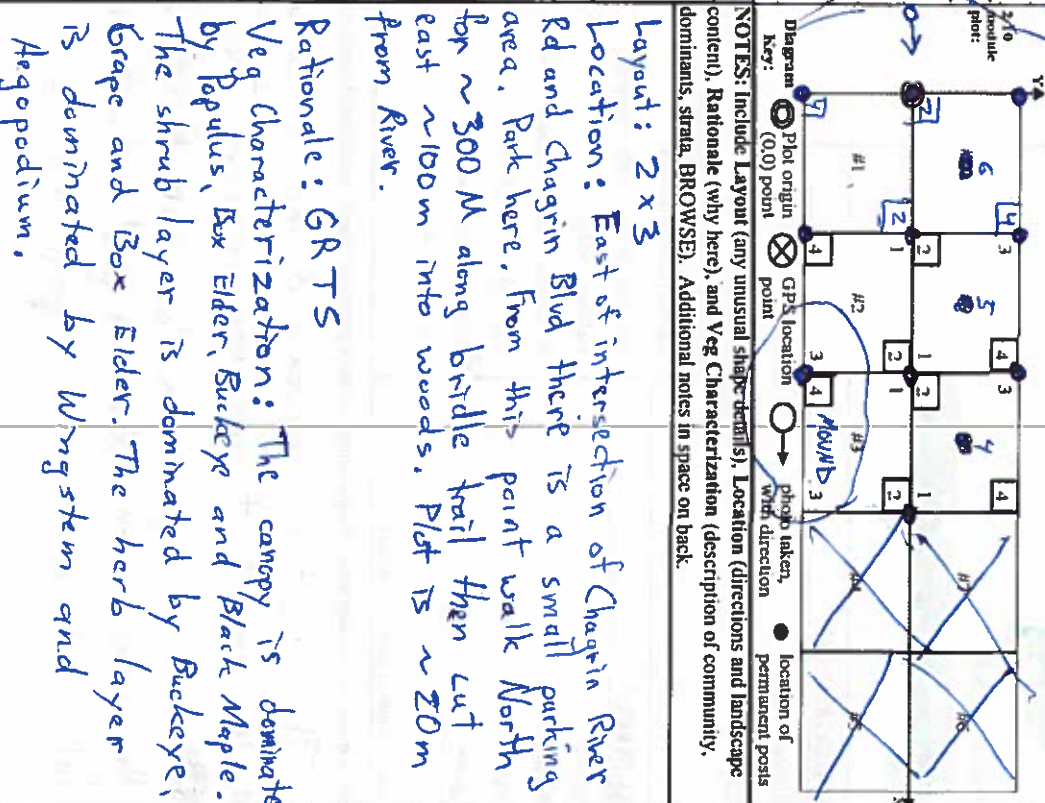 2/10
module
plot:
Y
6
5
4
3
4
3
4
4
2
2
1
2
1
2
1
#1
#2
#3
MOUND
#4
#5
#6
#7
2
1
2
1
2
4
4
3
4
3
Diagram
Key:
Plot origin
(0,0) point
GPS location
point
photo taken,
with direction
location of
permanent posts
NOTES: Include Layout (any unusual shape details), Location (directions and landscape
content), Rationale (why here), and Veg Characterization (description of community,
dominants, strata, BROWSE). Additional notes in space on back.
Layout: 2x3
Location: East of intersection of Chagrin River
Rd and Chagrin Blvd there is a small parking
area. Park here. From this point walk North
for ~300 M along bridle trail then cut
east ~100m into woods. Plot is ~20m
from River.
Rationale: GRTS
Veg Characterization: The canopy is dominate
by Populus, Box Elder, Buckeye and Black Maple.
The shrub layer is dominated by Buckeye,
Grape and Box Elder. The herb layer
is dominated by Wingstem and
Aegopodium.